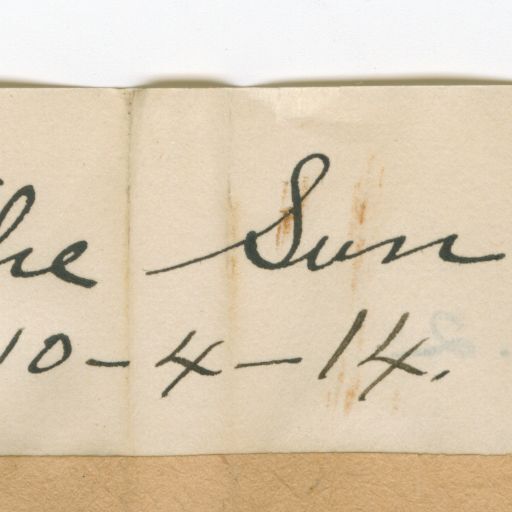 The Sun
10-4-14.